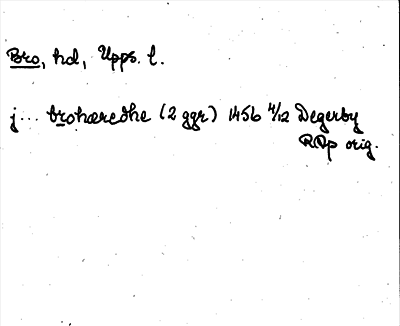 Bro, hd, Upps. l.
j... brohæredhe (2 ggr) 1456 4/12 Degerby
RAp orig.